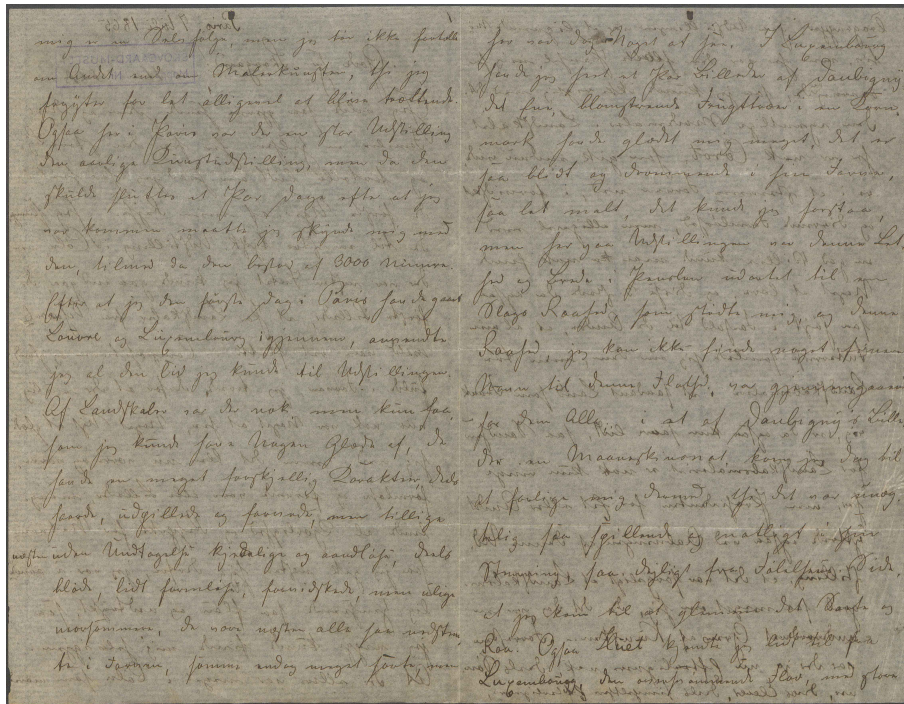 Paris 9 1865
mig er en Selvfølge, men jeg tør ikke fortælle
om Andet end om Malerkunsten, thi jeg
frygter for let alligevel at blive trættende.
Ogsaa her i Paris var der en stor Udstilling
den aarlige Kunstudstilling, men da den
skulde sluttes et Par Dage efter at jeg
var kommen maatte jeg skynde mig med
den, tilmed da den bestod af 3000 Numre.
Efter at jeg den første Dag i Paris havde gaaet
Louvre og Luxembourg igjennem, anvendte
jeg al den Tid jeg kunde til Udstillingen.
Af Landskaber var der nok, men kun faa,
som jeg kunde have Nogen Glæde af, de
havde en meget forskjellig Karakter, deels
haarde, udpillede og farvede, men tillige
næsten uden Undtagelse kjedelige og aandløse, deels
bløde, lidt formløse, men
morsommere, de vare næsten alle saa
i Farven, somme endog meget sorte, men
her var dog Noget at see. I Luxembourg
havde jeg seet et Par Billeder af Daubigny
det ene, blomstrende Frugttræer i en Korn-
mark havde glædet mig meget, det er
saa blidt og drømmende i sin Farve,
saa let malt, det kunde jeg forstaae,
men her paa Udstillingen var denne Let-
hed og Brede i Penslen udartet til en
Slags Raahed, som stødte mig, og denne
Raahed jeg kan ikke finde noget
Navn til denne Flothed, var gjennemgaaende
for dem Alle, i et af Daubignys Bille-
der, en Maaneskinsnat, kom jeg dog til
at forlige mig dermed, thi det var unæg-
telig saa spillende og natligt i sin
Stemning, saa deiligt fra Følelsens Side,
at jeg kom til at glemme det Sorte og
Raa. Ogsaa Huet kjendte jeg lidt til fra
Luxembourg, den oversvømmende Flod, med store